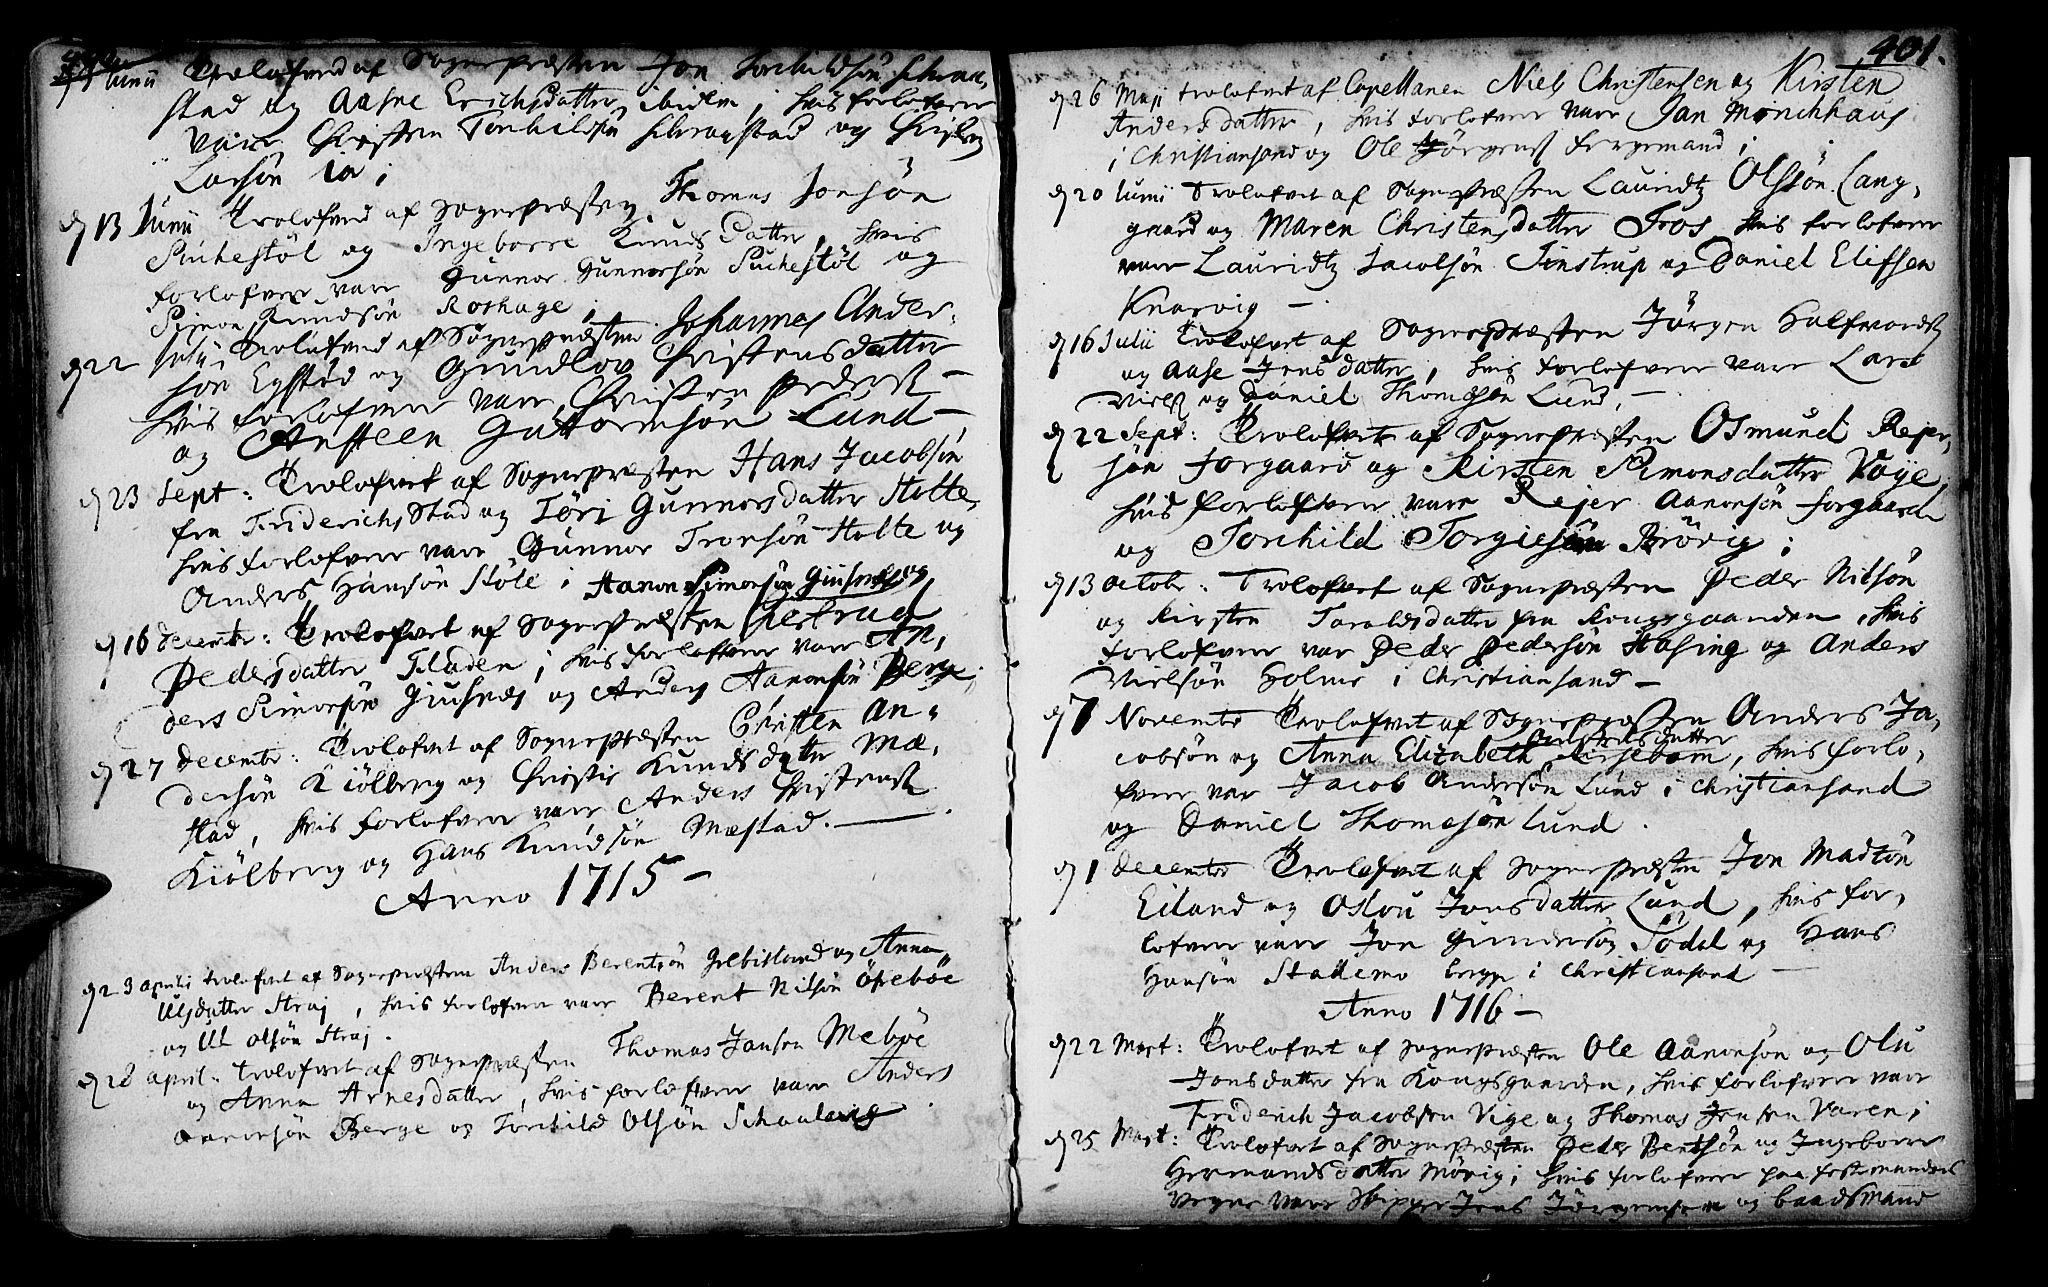 Junii Trolofved af Sognepræsten Jon Torchildsøn Schrau-
stad og Aasne Erichsdatter ibidem, hvis forlofvere
vare Christen Torchildsøn Schraustad og Christen
Larsøn
d 13 Junii Trolofved af Sognepræsten Thomas Jonsøn
Suchestøl og Ingeborre Knuds Datter, hvis
forlofvere vare Gunnar Gunnersøn Suchestøl og
Simon Knudsøn Roshage;
d 22 Julii Trolofved af Sognepræsten Johannes Ander-
søn Egstød og Gundlov Christensdatter
hvis forlofvere vare Christen Peders. –
og Ansteen Guttormsøn Lund –
d 23 Sept: Trolofvet af Sognepræsten Hans Jacobsøn
fra Friderichs Stad og Tøri Gunnersdatter Holte,
hvis forlofvere vare Gunner Tronsøn Holte og
Anders Hansøn Støle i Aanon Simonsøn Giusnes og
d 16 decembr: Trolofvet af Sognepræsten Giertrud
Pedersdatter Fladen; hvis forlofvere vare An-
ders Simonsøn Giusnes og Anders Aanonsøn Berge
d 27 decembr: Trolofvet af Sognepræsten Christen An-
dersøn Kiølberg og Christie Knuds datter Mæ-
stad, hvis forlofvere vare Anders Christens.
Kiølberg og Hans Knudsøn Mæstad. —
Anno 1715 –
d 23 aprilis trolofvet af Sognepræsten Anders Berentsøn Grebistand og Anna
Ulsdatter Straj, hvis forlofvere vare Berent Nilsøn Øyebøe
og Ul Olsøn Straj.
d 28 april. trolofvet af Sognepræsten Thomas Jansen Mebøe
og Anna Arnesdatter, hvis forlofvere vare Anders
Aanonsøn Berge og Torchild Olsøn Schaulevig
401.
d 26 Maji trolofvet af Capellanen Niels Christensen og Kirsten
Andersdatter, hvis forlofvere vare Jan Mønchhaus
i Christiansand og Ole Jørgens. fergemand;
d 20 Junii Trolofvet af Sognepræsten Lauridtz Olssøn Lang-
gaard og Maren Christensdatter Fros, hvis forlofvere
vare Lauridtz Jacobsøn Finstrup og Daniel Elifsen
Knarvig –
d 16 Julii Trolofvet af Sognepræsten Jørgen Halfvordts.
og Aase Jonsdatter, hvis forlofvere vare Lars
Niels. og Daniel Thomesøn Lund, –
d 22 Sept: Trolofvet af Sognepræsten Osmund Rejer-
søn Forgaard og Kirsten Simonsdatter Voye,
hvis forlofvere vare Rejer Aanonsøn forgaard
og Torchild Torgiesøn Brøvig;
d 13 octobr: Trolofvet af Sognepræsten Peder Nilsøn
og Kirsten Taraldsdatter fra Kongsgaarden, hvis
forlofvere var Peder Pedersøn Hasing og Anders
Nielsøn Holme i Christiansand –
d 7 Novembr Trolofvet af Sognepræsten Anders Ja-
cobsøn og Anna Elizabeth Kirsebom, hvis forlo-
fvere var Jacob Andersøn Lund i Christiansand
og Daniel Thomesøn Lund.
d 1 decembr Trolofvet af Sognepræsten Jon Madsøn
Eiland og Oslou Jonsdatter Lund, hvis for-
lofvere vare Jon Gundersøn Todal og Hans
Hansøn Stademo berge i Christiansand –
Anno 1716 –
d 22 Mart: Trolofvet af Sognepræsten Ole Aanonsøn og Olu
Jonsdatter fra Kongsgaarden, hvis forlofvere vare
Friderich Jacobsen Vige og Thomas Jensen Varen;
d 25 Mart: Trolofvet af Sognepræsten Peder Bentsøn og Ingeborre
Hermansdatter Møvig; hvis forlofvere paa festemandens
Vegne vare Skipper Jens Jørgensen og baadsmand